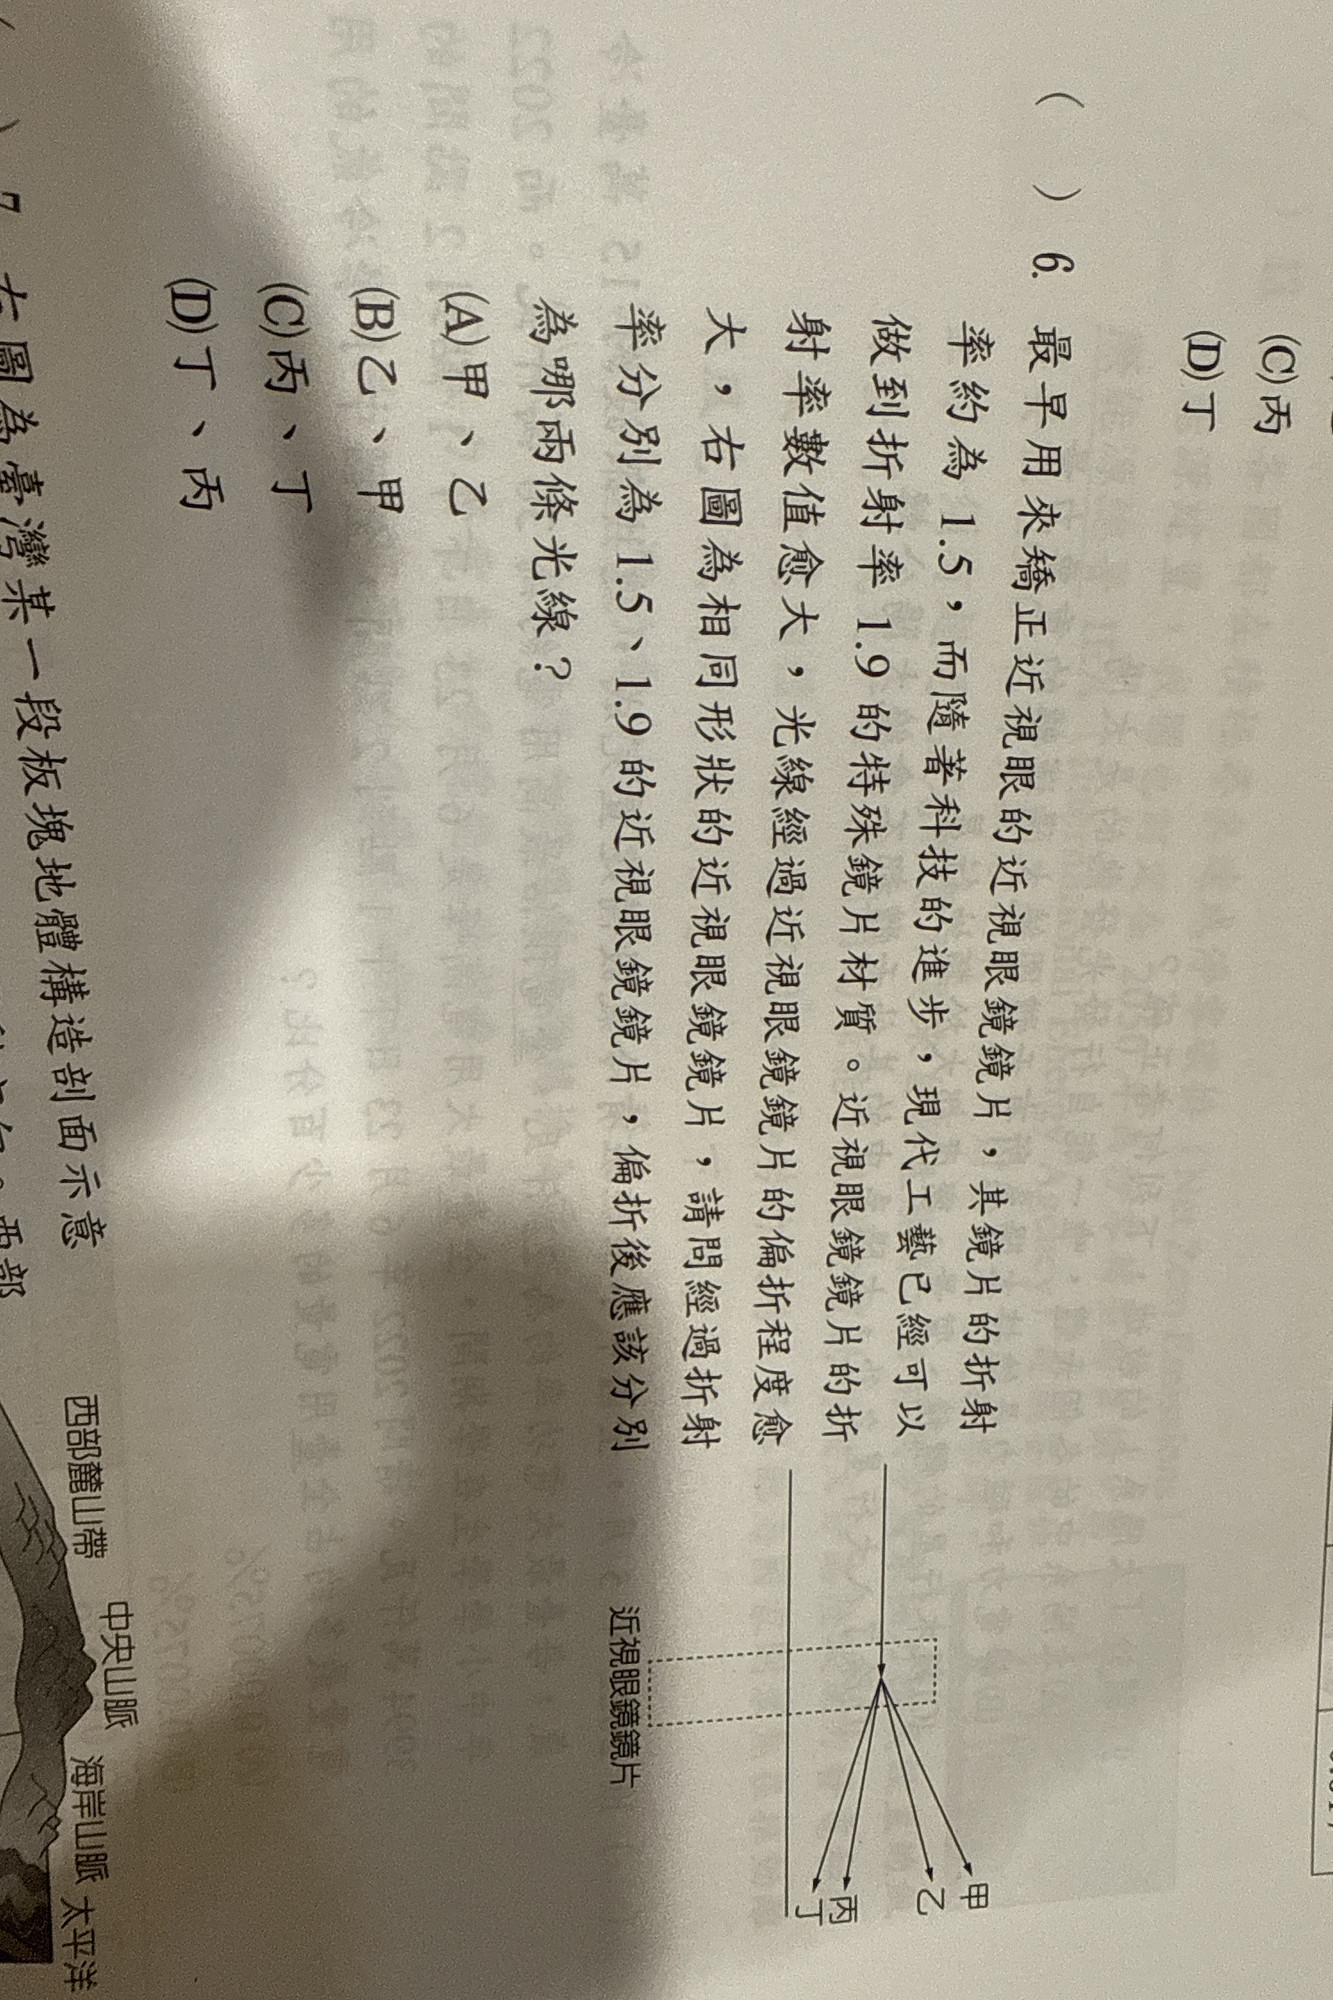 (C)丙
(D)丁
(　)6. 最早用來矯正近視眼的近視眼鏡鏡片，其鏡片的折射
率約為 1.5，而隨著科技的進步，現代工藝已經可以
做到折射率 1.9 的特殊鏡片材質。近視眼鏡鏡片的折
射率數值愈大，光線經過近視眼鏡鏡片的偏折程度愈
大，右圖為相同形狀的近視眼鏡鏡片，請問經過折射
率分別為 1.5、1.9 的近視眼鏡鏡片，偏折後應該分別
為哪兩條光線？
甲
乙
丙
丁
近視眼鏡鏡片
(A)甲、乙
(B)乙、甲
(C)丙、丁
(D)丁、丙
圖為臺灣某一段板塊地體構造剖面示意
西部
西部麓山帶
中央山脈
海岸山脈
太平洋